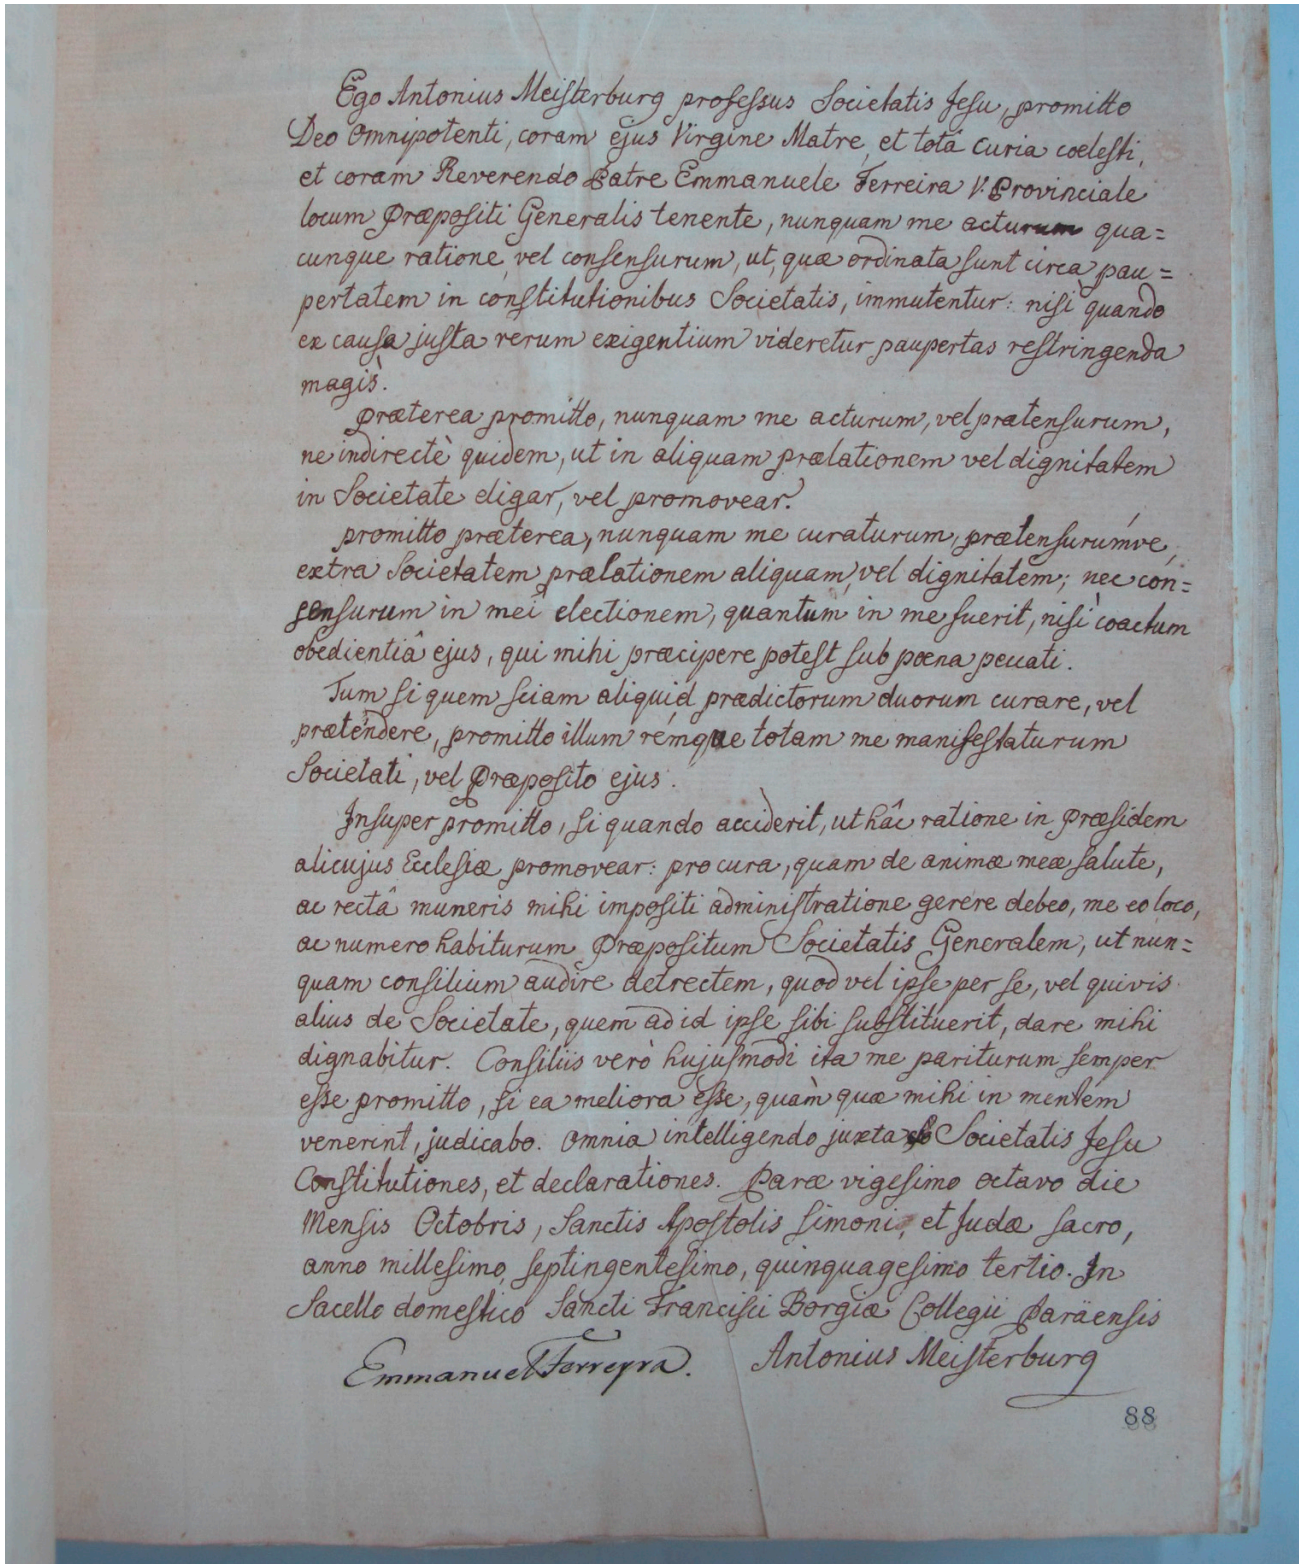 Ego Antonius Meisterburg professus Societatis Jesu, promitto
Deo Omnipotenti, coram ejus Virgine Matre, et totâ curia coelesti,
et coram Reverendo Patre Emmanuele Ferreira V. Provinciale
locum Præpositi Generalis tenente, nunquam me acturum qua=
cunque ratione, vel consensurum, ut, quæ ordinata sunt circa pau=
pertatem in constitutionibus Societatis, immutentur: nisi quando
ex causa justa rerum exigentium videretur paupertas restringenda
magis.
Præterea promitto, nunquam me acturum, vel prætensurum,
ne indirectè quidem, ut in aliquam prælationem vel dignitatem
in Societate eligar, vel promovear.
Promitto præterea, nunquam me curaturum, prætensurúmve,
extra Societatem prælationem aliquam, vel dignitatem; nec con=
sensurum in mei electionem, quantum in me fuerit, nisi coactum
obedientiâ ejus, qui mihi præcipere potest sub poena peccati.
Tum si quem sciam aliquid prædictorum duorum curare, vel
præténdere, promitto illum rémque totam me manifestaturum
Societati, vel Præposito ejus.
Insuper promitto, si quando acciderit, ut hâc ratione in Præsidem
alicujus Ecclesiæ promovear: pro cura, quam de animæ meæ salute,
ac rectâ muneris mihi impositi administratione gerere debeo, me eo loco,
ac numero habiturum Præpositum Societatis Generalem, ut nun=
quam consilium audire detrectem, quod vel ipse per se, vel quivis
alius de Societate, quem ad id ipse sibi substituerit, dare mihi
dignabitur. Consiliis verò hujusmodi ita me pariturum semper
esse promitto, si ea meliora esse, quàm quæ mihi in mentem
venerint, judicabo. Omnia intelligendo juxta Societatis Jesu
Constitutiones, et declarationes. Paræ vigesimo octavo die
Mensis Octobris, Sanctis Apostolis Simoni, et Judæ sacro,
anno millesimo, septingentesimo, quinquagesimo tertio. In
Sacello domestico Sancti Francisci Borgiæ Collegii Paräensis
Emmanuel Ferreyra. Antonius Meisterburg
88